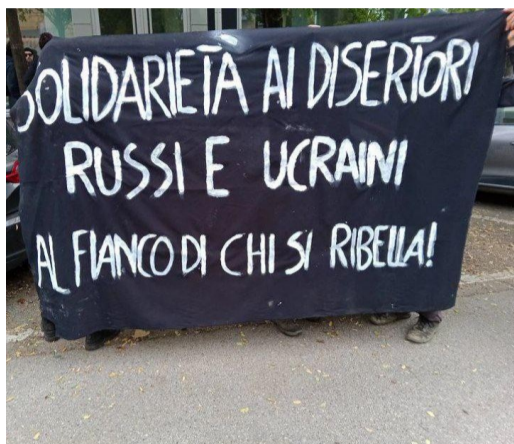 SOLIDARIETÀ AI DISERTORI
RUSSI E UCRAINI
AL FIANCO DI CHI SI RIBELLA!